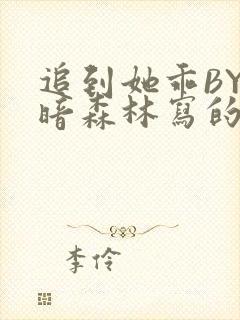 追到她乖BY
暗森林寫的
李伶